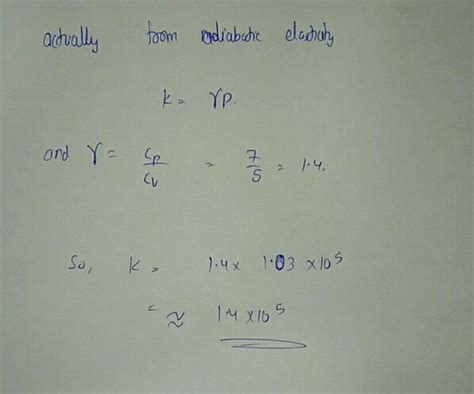 actually from adiabatic elasticity
k = γp.
and γ = Cp/Cv = 7/5 = 1.4.
So, k = 1.4 x 1.03 x 10⁵
≈ 1.4 x 10⁵